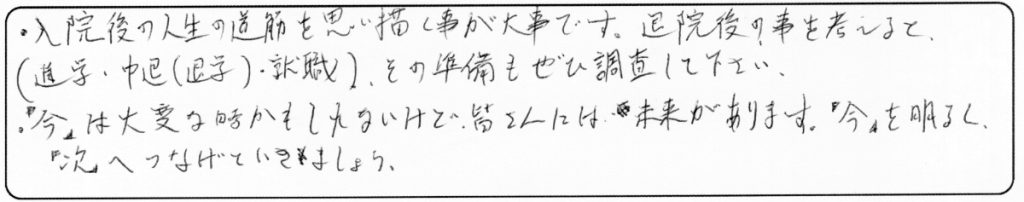 ・入院後の人生の道筋を思い描く事が大事です。退院後の事を考えると、
(進学・中退(退学)・就職)、その準備もぜひ調査して下さい。
・『今』は大変な時かもしれないけど、皆さんには、未来があります。『今』を明るく、
『次』へつなげていきましょう。